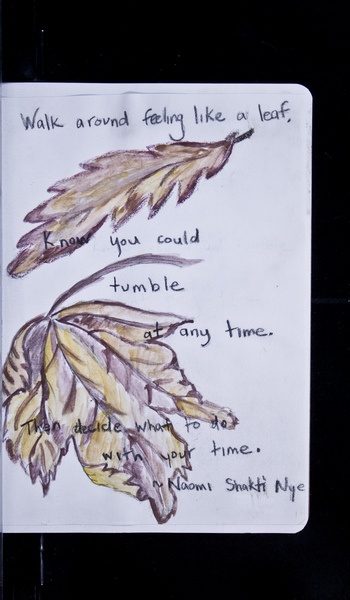 Walk around feeling like a leaf.
Know you could
tumble
at any time.
Then decide what to do
with your time.
~ Naomi Shakti Nye